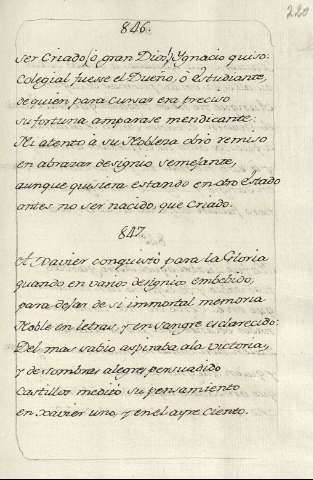 220
846.
Ser Criado (ô gran Dios!) Ygnacio quiso:
Colegial fuesse el Dueño, ô estudiante,
de quien para cursar era preciso
su fortuna amparase mendicante:
Mi atento à su Nobleza obrò remiso
en abrazar designio semejante,
aunque quisiera estando en otro estado
antes no ser nacido, que Criado.
847.
A Xavier conquistò para la Gloria
quando en vanos designios embebido,
para dejar de si immortal memoria
Noble en letras, y en sangre esclarecido:
Del mas sabio aspiraba a la victoria,
y de sombras alegres persuadido
Castillos meditò su pensamiento
en Xavier uno, y en el ayre ciento.